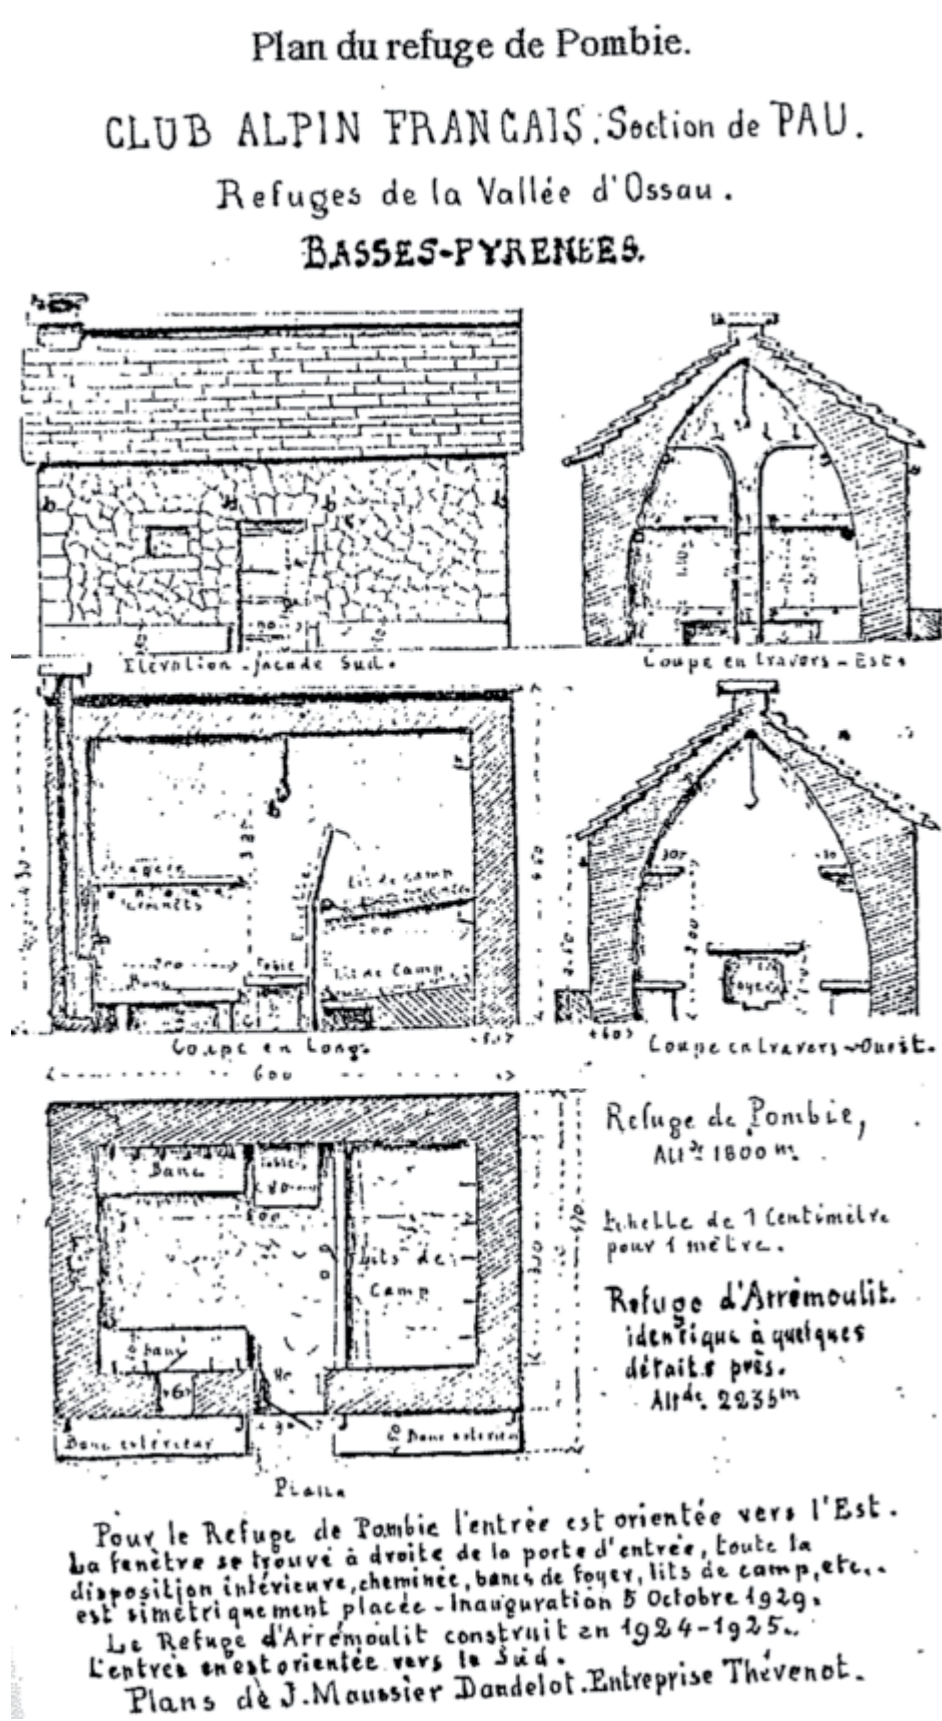 Plan du refuge de Pombie.
CLUB ALPIN FRANCAIS. Section de PAU.
Refuges de la Vallée d'Ossau.
BASSES-PYRENEES.
Elévation - façade Sud.
Coupe en travers - Est.
430
lits de camp
200
Banc
Table
Lit de Camp
Coupe en Long.
30
200
250
Foyer
+60>
Coupe en travers - Ouest.
600
Banc
Table
80
Lits de
Camp
banc
90
Banc extérieur
Banc extérieur
Plan.
Refuge de Pombie,
Altde 1800 m.
Echelle de 1 Centimètre
pour 1 mètre.
Refuge d'Arrémoulit.
identique à quelques
détails près.
Altde. 2235m
Pour le Refuge de Pombie l'entrée est orientée vers l'Est.
La fenêtre se trouve à droite de la porte d'entrée, toute la
disposition intérieure, cheminée, bancs de foyer, lits de camp, etc..
est simétriquement placée - Inauguration 5 Octobre 1929.
Le Refuge d'Arrémoulit construit en 1924-1925.
L'entrée en est orientée vers le Sud.
Plans de J. Maussier Dandelot. Entreprise Thévenot.